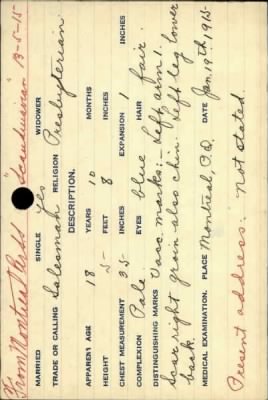 From Montreal Per SS "Scandinavian" 13-5-15-
MARRIED SINGLE Yes WIDOWER
TRADE OR CALLING Salesman RELIGION Presbyterian
DESCRIPTION.
APPARENT AGE 18 YEARS 10 MONTHS
HEIGHT 5- FEET 8 INCHES
CHEST MEASUREMENT 35- INCHES EXPANSION 1 INCHES
COMPLEXION Pale EYES blue HAIR fair.
DISTINGUISHING MARKS Vacc. marks:- Left arm 1.
Scar right groin also chin. Left leg lower
back.
MEDICAL EXAMINATION. PLACE Montreal, P.Q. DATE Jan. 19th, 1915
Present address:- Not stated.